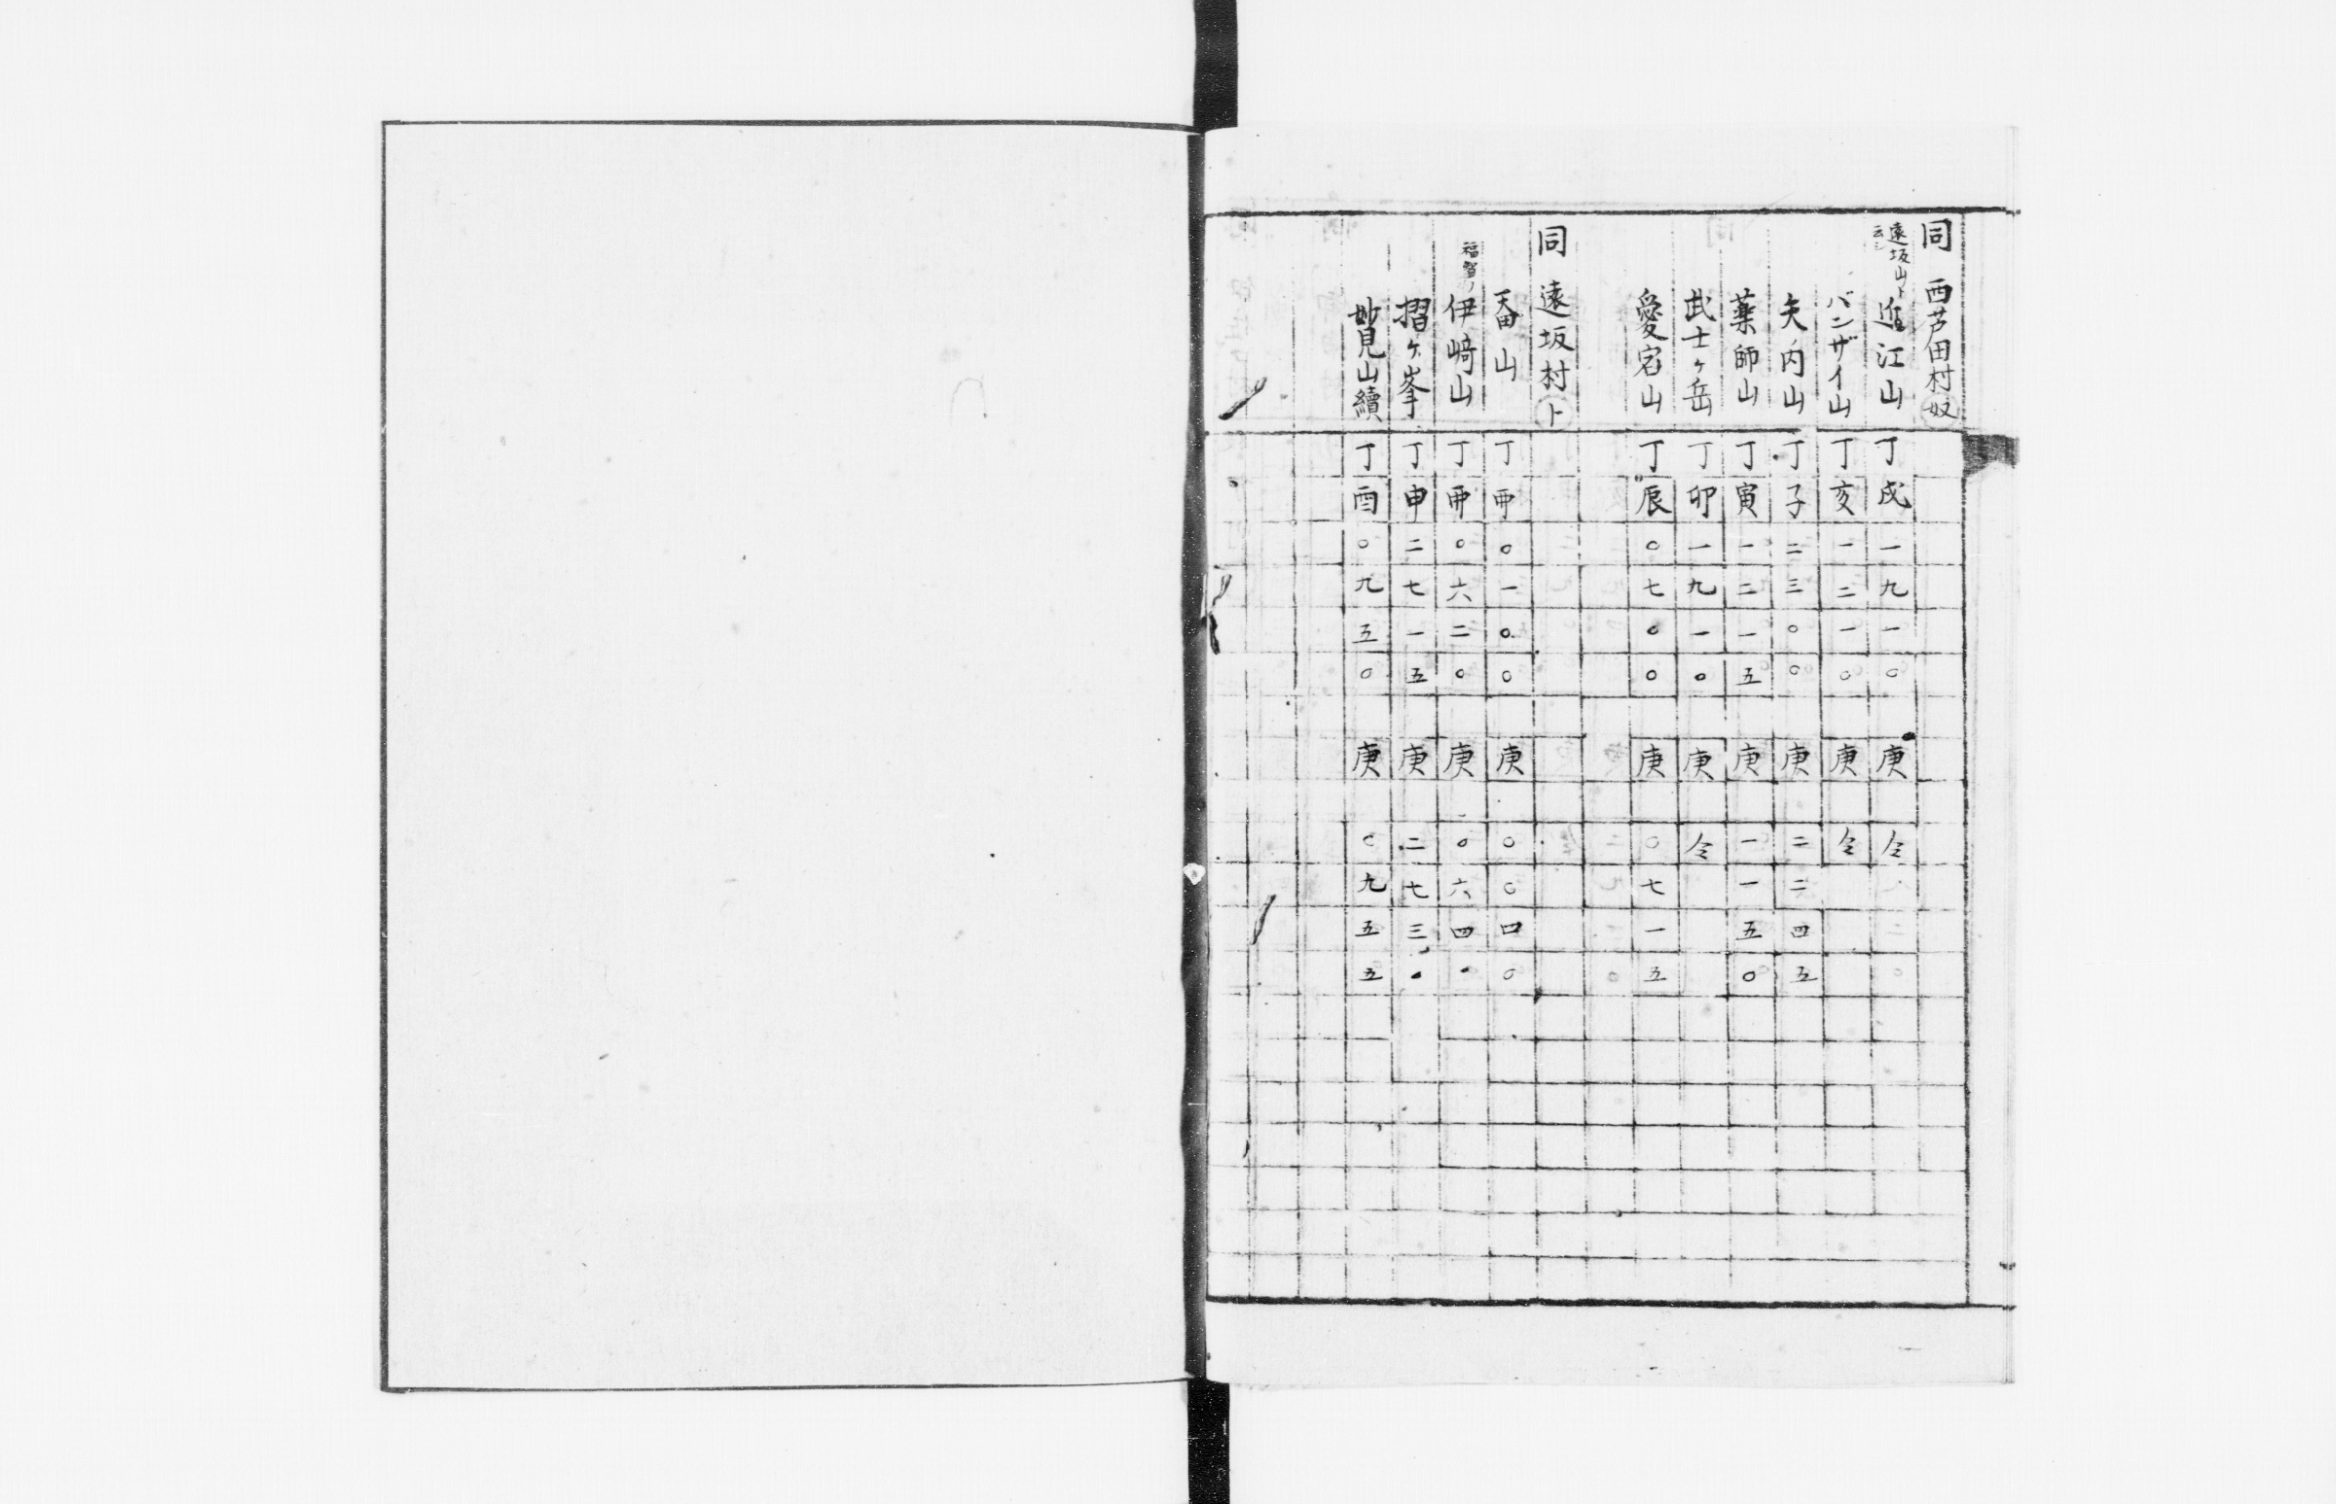 同 西芦田村 奴
遠坂山ト云
進江山 丁 戌 一 九 一 〇 庚 仝
バンザイ山 丁 亥 一 二 一 〇 庚 仝
矢内山 丁 子 二 三 〇 〇 庚 二 二 四 五
薬師山 丁 寅 一 二 一 五 庚 一 一 五 〇
武士ヶ岳 丁 卯 一 九 一 〇 庚 仝
愛宕山 丁 辰 〇 七 〇 〇 庚 〇 七 一 五
同 遠坂村 ト
山 丁 〇 一 〇 〇 庚 〇 〇 四 〇
福智ノ
伊﨑山 丁 〇 六 二 〇 庚 〇 六 四 〇
摺ヶ峯 丁 申 二 七 一 五 庚 二 七 三 〇
妙見山續 丁 酉 〇 九 五 〇 庚 〇 九 五 五